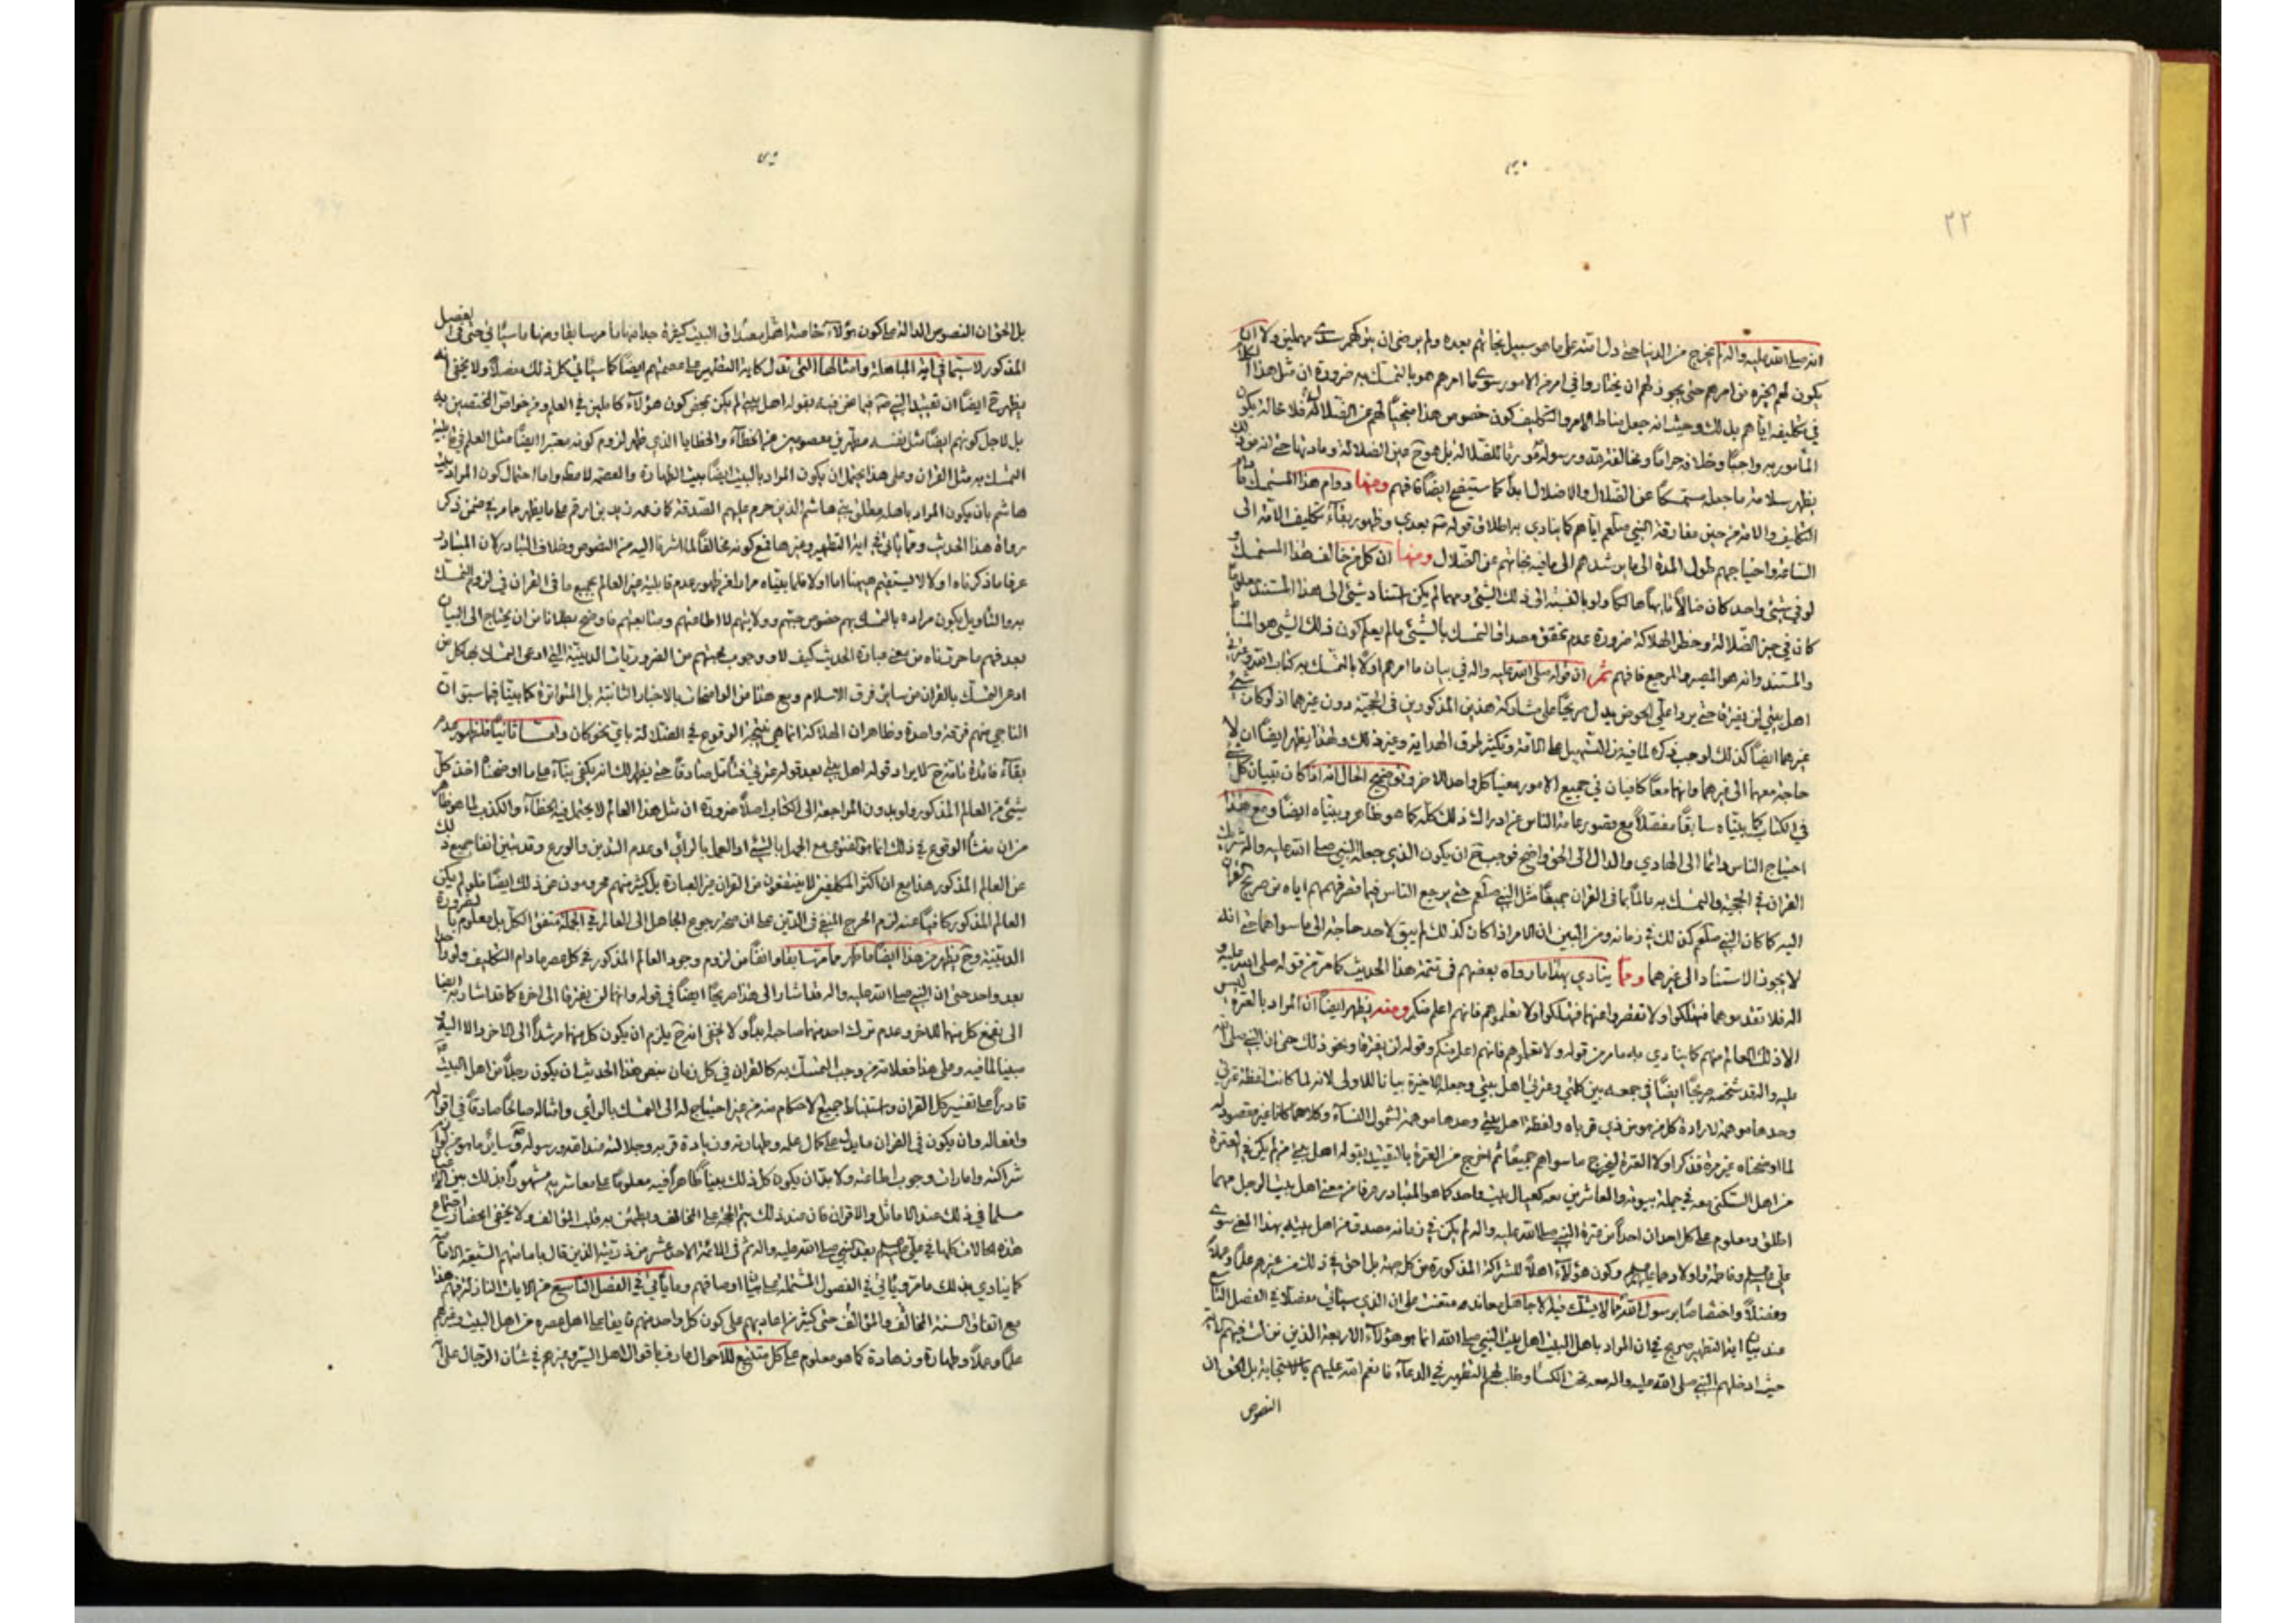 ٢٢
انه صلى الله عليه واله لم يخرج من الدنيا حتى دل امته على ما هو سبيل نجاتهم بعده ولم يرض ان يتركهم سدى مهملين ولا ان
يكون لهم الخيرة من امرهم حتى يجوز لهم ان يختاروا في امر من الامور سوى ما امرهم هو بالتمسك به ضرورة ان مثل هذا
في تكليفه اياهم بذلك وحيث انه جعل مناط الامر والتكليف كون خصوص هذا منجيا لهم عن الضلالة فلا محالة يكون
المأمور به واجبا وخلافه حراما ومخالفته لله ورسوله مورثا للضلالة بل هو ح عين الضلالة ومادتها حتى انه من
يظهر سلامة ما جعله متمسكا عن الضلال والاضلال ابدا كما ستتضح ايضا فافهم ومنها دوام هذا المتمسك ما دام
التكليف والامة من حين مفارقة النبي صلعم اياهم كما ينادي به اطلاق قوله بعدي وظهور بقاء تكليف الامة الى
الساعة واحتياجهم طول المدة الى ما يرشدهم الى ما فيه نجاتهم عن الضلال ومنها ان كل من خالف هذا المتمسك
لو في شيء واحد كان ضالا هالكا ولو بالنسبة الى ذلك الشيء ومهما لم يكن استناد شيء الى هذا المستند معلوما
كان في حيز الضلالة وخطر الهلاكة ضرورة عدم تحقق مصداق التمسك بالشيء ما لم يعلم كون ذلك الشيء هو المنشأ
والمستند وانه هو المصير والمرجع فافهم ثم ان قوله صلى الله عليه واله في بيان ما امرهم اولا بالتمسك به كتاب الله وعترتي
اهل بيتي لن يفترقا حتى يردا علي الحوض يدل صريحا على مشاركة هذين المذكورين في الحجية دون غيرهما اذ لو كان شيء
غيرهما ايضا كذلك لوجب ذكره لما فيه من التسهيل على الامة وتكثير طرق الهداية وغير ذلك ولهذا يظهر ايضا ان لا
حاجة معهما الى غيرهما وانهما معا كافيان في جميع الامور معينا كل واحد للاخر وتوضيح الحال انه لما كان تبيان كل شيء
في الكتاب كما بيناه سابقا مفصلا مع قصور عامة الناس عن ادراك ذلك كله كما هو ظاهر وبيناه ايضا ومع هذا
احتياج الناس دائما الى الهادي والدال الى الحق واضح فوجب ح ان يكون الذي جعله النبي صلى الله عليه واله شريك
القران في الحجية والتمسك به عالما بما في القران جميعا مثل النبي صلعم حتى يرجع الناس فيما قصر فهمهم اياه من صريح القران
اليه كما كان النبي صلعم كذلك في زمانه ومن البين ان الامر اذا كان كذلك لم يبق لاحد حاجة الى ما سواهما حتى انه
لا يجوز الاستناد الى غيرهما ومما ينادي بهذا ما رواه بعضهم في تتمة هذا الحديث كما مر من قوله صلى الله عليه و
اله فلا تقدموهما فتهلكوا ولا تقصروا عنهما فتهلكوا ولا تعلموهم فانهم اعلم منكم ومنه يظهر ايضا ان المراد بالعترة ليس
الا ذلك العالم منهم كما ينادي به ما مر من قوله ولا تعلموهم فانهم اعلم منكم وقوله لن يفترقا ونحو ذلك حتى ان النبي صلى الله
عليه واله قد شخصه صريحا ايضا في جمعه بين كلمتي وعترتي اهل بيتي وجعله الاخيرة بيانا للاولى لانه لما كانت لفظة عترتي
وحدها موهمة لارادة كل من هو من ذي قرباه ولفظة اهل بيتي وحدها موهمة لشمول النساء وكلاهما كانا غير مقصود له
لما اوضحناه غير مرة فذكر اولا العترة ليخرج ما سواهم جميعا ثم اخرج من العترة بالتقييد بقوله اهل بيتي من لم يكن في العترة
من اهل السكنى معه في جملة بيوته والمعاشرين معه كعيال بيت واحد كما هو المتبادر عرفا من معنى اهل بيت الرجل مهما
اطلق ومعلوم على كل احد ان احدا من عترة النبي صلى الله عليه واله لم يكن في زمانه مصدق من اهل بيته بهذا المعنى سوى
علي وفاطمة واولادهما وكون هؤلاء اهلا للشراكة المذكورة من كل جهة بل احق في ذلك من غيرهم علما وعملا
وفضلا واختصاصا برسول الله مما لا يشك فيه الا جاهل معاند متعنت على ان الذي سيأتي مفصلا في الفصل التاسع
عند بيان اية التطهير صريح في ان المراد باهل البيت اهل بيت النبي صلى الله انما هو هؤلاء الاربعة الذين نزلت فيهم الاية
حيث ادخلهم النبي صلى الله عليه واله معه تحت الكساء وطلب لهم التطهير في الدعاء فانعم الله عليهم بالاستجابة بل الحق ان
النصوص
بل الحق ان النصوص الدالة على كون هؤلاء خاصة اهل بيته كثيرة جدا منها ما مر سابقا ومنها ما سيأتي حتى في الفصل
المذكور لا سيما في اية المباهلة وامثالها التي تدل كاية التطهير على عصمتهم ايضا كما سيأتي كل ذلك مفصلا ولا يخفى انه
يظهر ح ايضا ان تقييد النبي فيما نحن فيه بقوله اهل بيتي لم يكن بمحض كون هؤلاء كاملين في العلم ومن خواص المختصين به
بل لاجل كونهم ايضا مثل نفسه مطهرين معصومين من الخطأ والخطايا الذي ظهر لزوم كونه معتبرا ايضا مثل العلم في قابلية
التمسك به مثل القران وعلى هذا يحتمل ان يكون المراد بالبيت ايضا بيت الطهارة والعصمة واما احتمال كون المراد بني
هاشم بان يكون المراد باهله مطلق بني هاشم الذين حرم عليهم الصدقة كما عن زيد بن ارقم على ما يظهر مما مر في ضمن ذكر
رواة هذا الحديث ومما يأتي في اية التطهير وغيرها فمع كونه مخالفا لما اشرنا اليه من النصوص وخلاف المتبادر لان المتبادر
عرفا ما ذكرناه اولا لا يستقيم هيهنا اما اولا فلما بيناه مرارا من ظهور عدم قابلية غير العالم بجميع ما في القران في لزوم التمسك
به والتأويل بكون مراده بالتمسك بهم خصوص حبهم وولايتهم لا اطاعتهم ومتابعتهم فاوضح بطلانا من ان يحتاج الى البيان
بعد فهم ما حررناه من معنى عبارة الحديث كيف لا ووجوب محبتهم من الضروريات الدينية التي ادعى التمسك بها كل من
ادعى التمسك بالقران من سائر فرق الاسلام ومع هذا من الواضحات بالاخبار الثابتة بل المتواترة كما بينا فيما سبق ان
الناجي منهم فرقة واحدة وظاهر ان الهلاكة انما هي نتيجة الوقوع في الضلالة باي نحو كان واما ثانيا فلظهور عدم
بقاء فائدة تامة ح لايراد قوله اهل بيتي بعد قوله عترتي فتأمل صادقا حتى يظهر لك انه يكفي بناء على ما اوضحنا اخذ كل
شيء من العالم المذكور ولو بدون المراجعة الى الكتاب اصلا ضرورة ان مثل هذا العالم لا يحتمل فيه الخطأ والكذب لما هو ظاهر
من ان منشأ الوقوع في ذلك انما هو الفتوى مع الجهل بالشيء او العمل بالرأي او عدم التدين والورع وقد تبين انفا جميع ذلك
عن العالم المذكور هذا مع ان اكثر المكلفين لا ينتفعون من القران غير العبارة بل كثير منهم محرومون عن ذلك ايضا فلو لم يكن
العالم المذكور كافيا عنه لزم الحرج المنفي في الدين على ان صحة رجوع الجاهل الى العالم في الجملة متفق الكل بل معلوم بالضرورة
الدينية وح يظهر من هذا ايضا ما ظهر مما مر سابقا وانفا من لزوم وجود العالم المذكور في كل عصر ما دام التكليف ولو واحدا
بعد واحد حتى ان النبي صلى الله عليه واله قد اشار الى هذا صريحا ايضا في قوله وانهما لن يفترقا الى اخره كما قد اشار به ايضا
الى نفع كل منهما للاخر وعدم ترك احد منهما صاحبه ابدا ولا يخفى انه ح يلزم ان يكون كل منهما مرشدا الى الاخر والا اليه و
مبينا لما فيه وعلى هذا فعلامة من وجب التمسك به كالقران في كل زمان بنص هذا الحديث ان يكون رجلا من اهل البيت
قادرا على تفسير كل القران واستنباط جميع الاحكام منه من غير احتياج له الى التمسك بالرأي وامثاله صالحا صادقا في اقواله
وافعاله وان يكون في القران ما يدل على كمال علمه وطهارته وزيادة قربه وجلالته عند الله ورسوله وسائر ما هو من لوازم
شراكته وامارات وجوب اطاعته ولا بد ان يكون كل ذلك بينا ظاهرا فيه معلوما على معاشريه مشهودا بذلك بين
مسلما في ذلك عند الاماثل والاقران فان عند ذلك يتم الحجة على المخالف ويطمئن به قلب المؤالف ولا يخفى انحصار اجتماع
هذه الحالات كلها في علي بعد النبي صلى الله عليه واله ثم في الائمة الاحد عشر من ذريته الذين قال بامامتهم الشيعة الامامية
كما ينادي بذلك ما مر ويأتي في الفصول المشتملة على بيان اوصافهم وما يأتي في الفصل التاسع من الايات النازلة فيهم هذا
مع اتفاق السنة المخالف والمؤالف حتى كثير من اعاديهم على كون كل واحد منهم فايقا على اهل عصره من اهل البيت وغيرهم
علما وعملا وطهارة وزهادة كما هو معلوم على كل متتبع للاحوال عارف باقوال اهل السير وغيرهم في شأن الرجال على